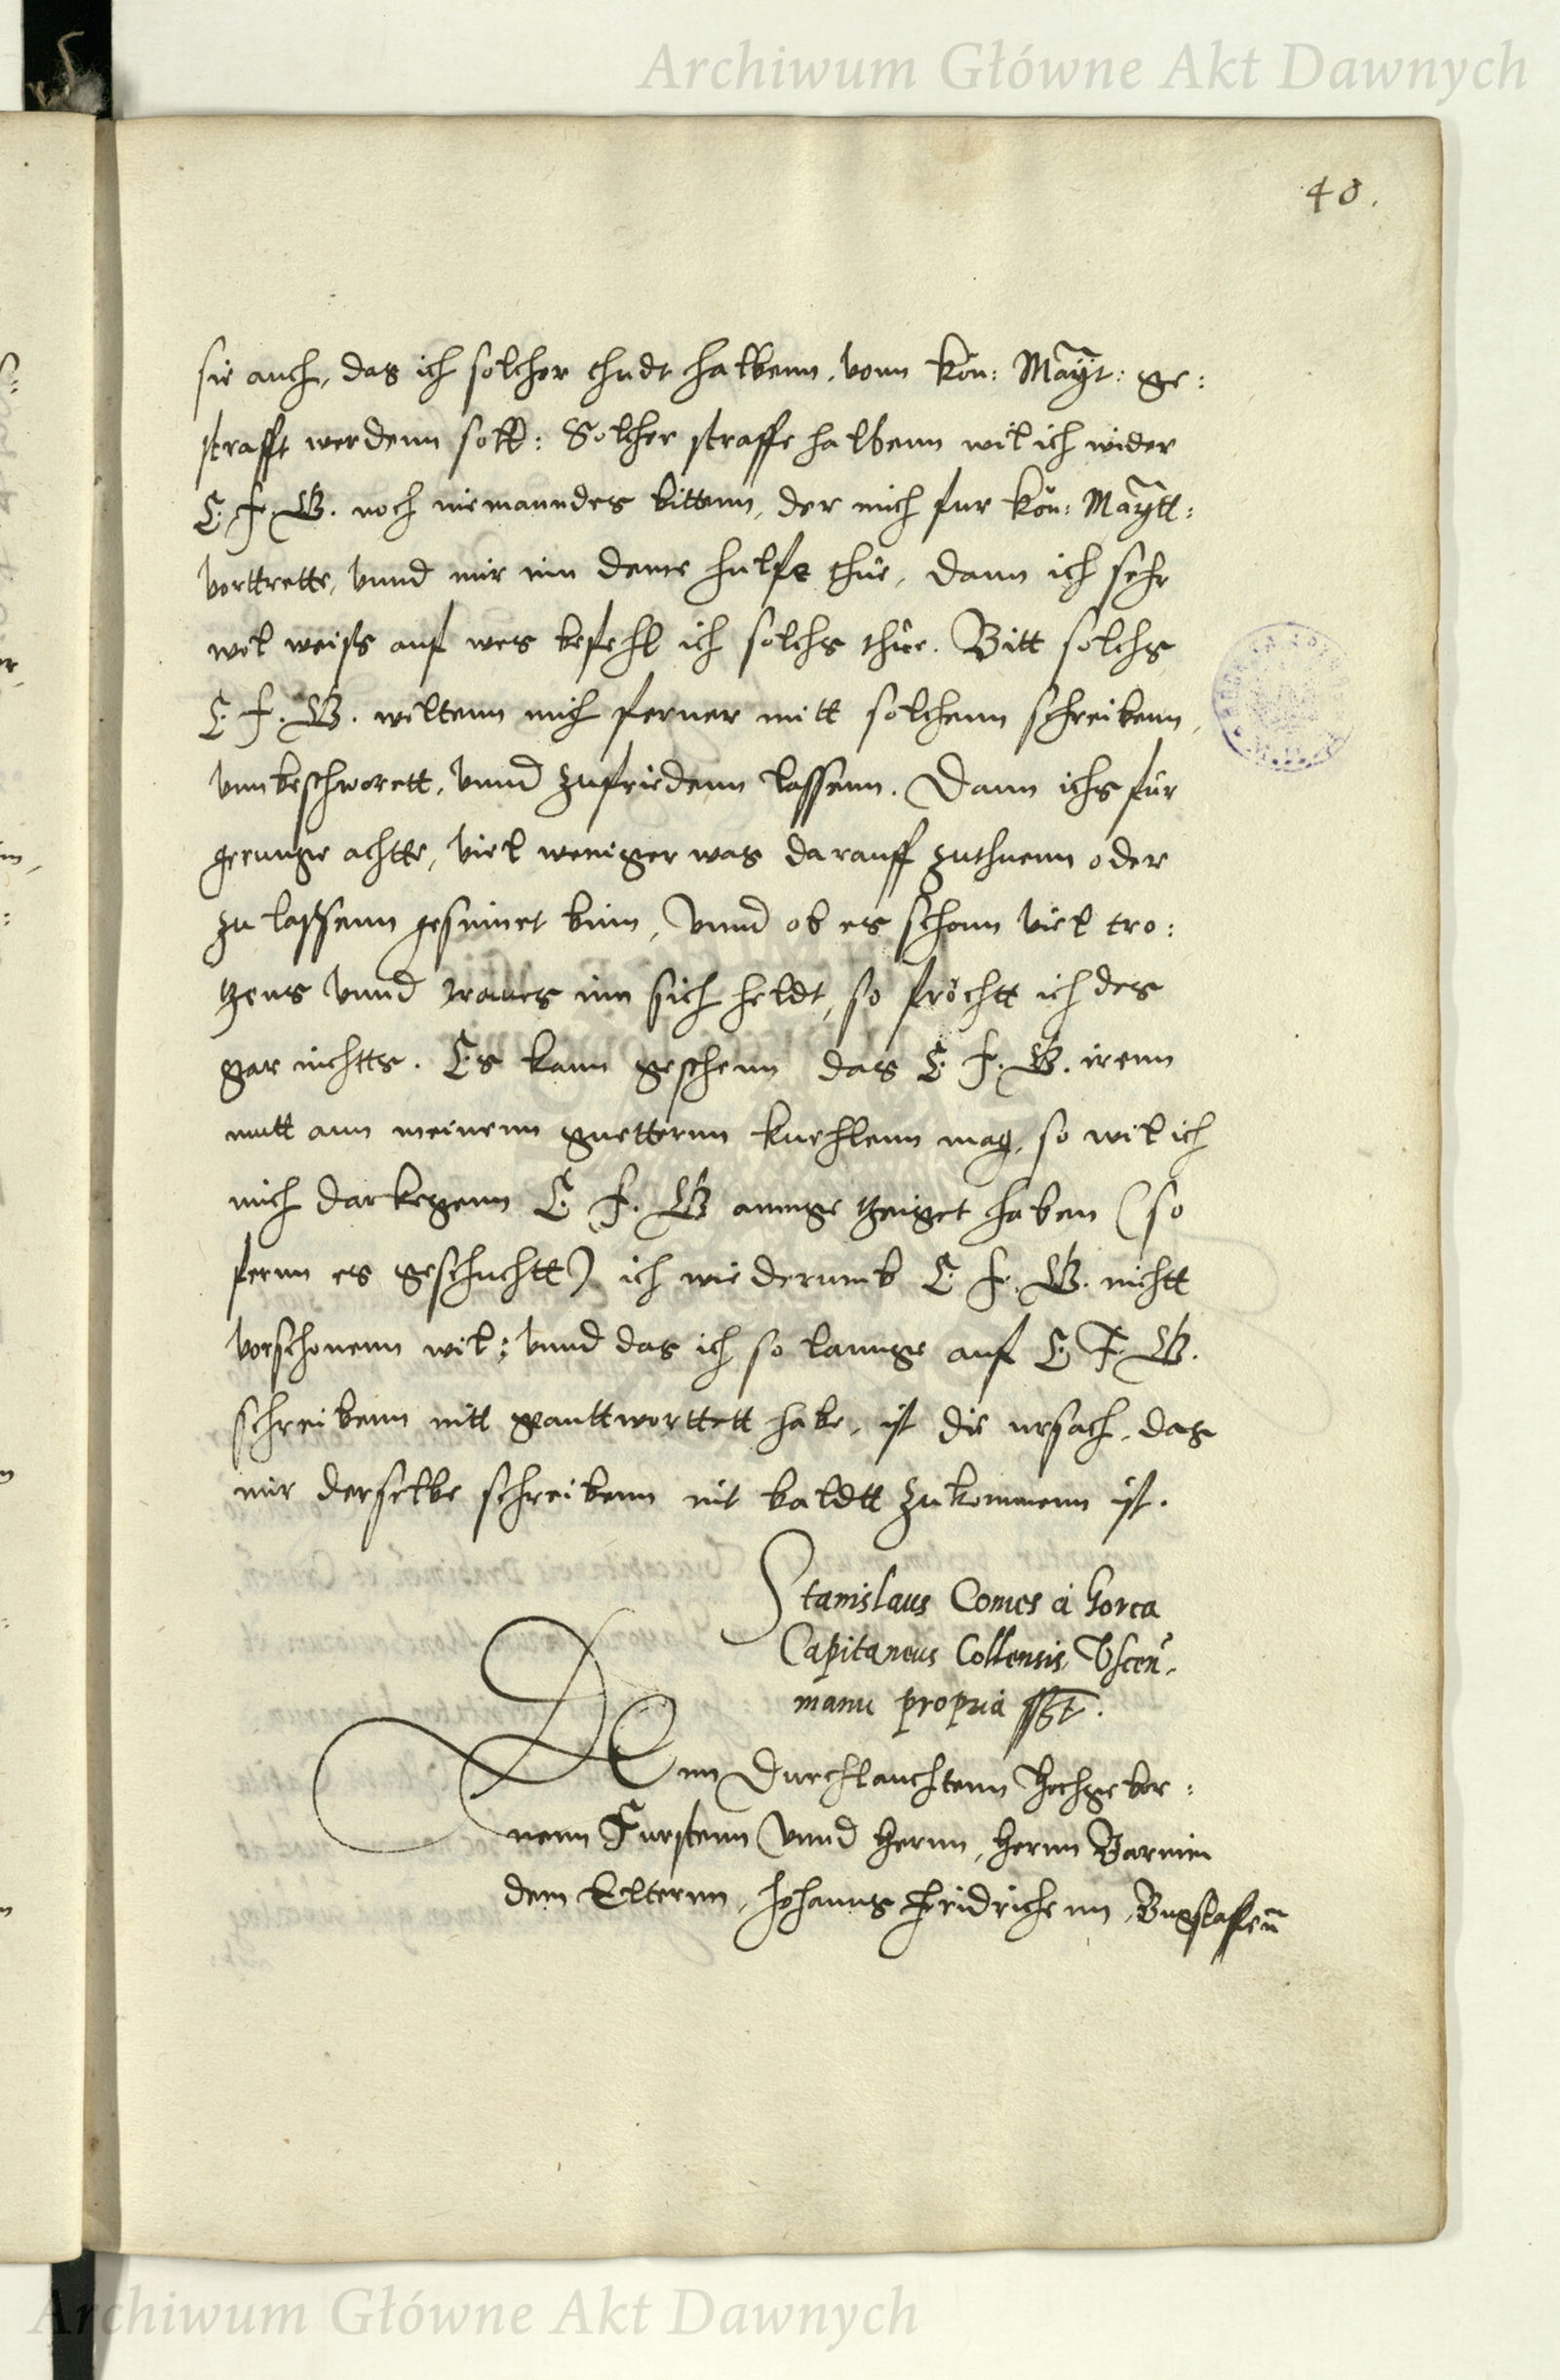 Archiwum Główne Akt Dawnych
40.
sie auch, das ich solcher thadt halbenn, vonn Kön: Maÿt: ge:
strafft werdenn soll: Solcher straffe halbenn wil ich wider
E. F. G. noch niemanndes bittenn, der mich fur Kön: Maÿtt:
vorttrette, vnnd mir inn deme hulfe thüe, dann ich sehr
wol weiss auf wes befehl ich solchs thüe. Bitt solchs
E. F. G. woltenn mich ferner mitt solchenn schreibenn,
vnnbeschworett, vnnd zufriedenn lassenn. Dann ichs für
geringe achtte, viel weniger was darauff zuthuenn oder
zu lassenn gesinnet binn, Vnnd ob es schonn viel tro:
tzens vnnd inn sich heldt, so fröchtt ich des
gar nichtts. Es kann geschenn das E. F. G. irenn
mutt ann meinenn guetternn kuehlenn mag, so wil ich
mich darkegenn E. F. G annge tzeiget haben (so
fernn es geschuchtt) ich wie derumb E. F. G. nichtt
vorschonenn wil; vnnd das ich so lannge auf E F. G.
schreibenn nitt geanttworttett habe, ist die ursach, das
mir derselbe schreibenn nit baldtt zukommenn ist.
Stanislaus Comes a Gorca
Capitaneus Collensis Vscen̄.
manu propria sst.
DEnn Durchlauchtenn Hochgebor:
nenn Furstenn vnnd Hernn, Hernn Barnim
dem Elternn, Johanns Fridrichenn, Bugslafen̄
Archiwum Główne Akt Dawnych